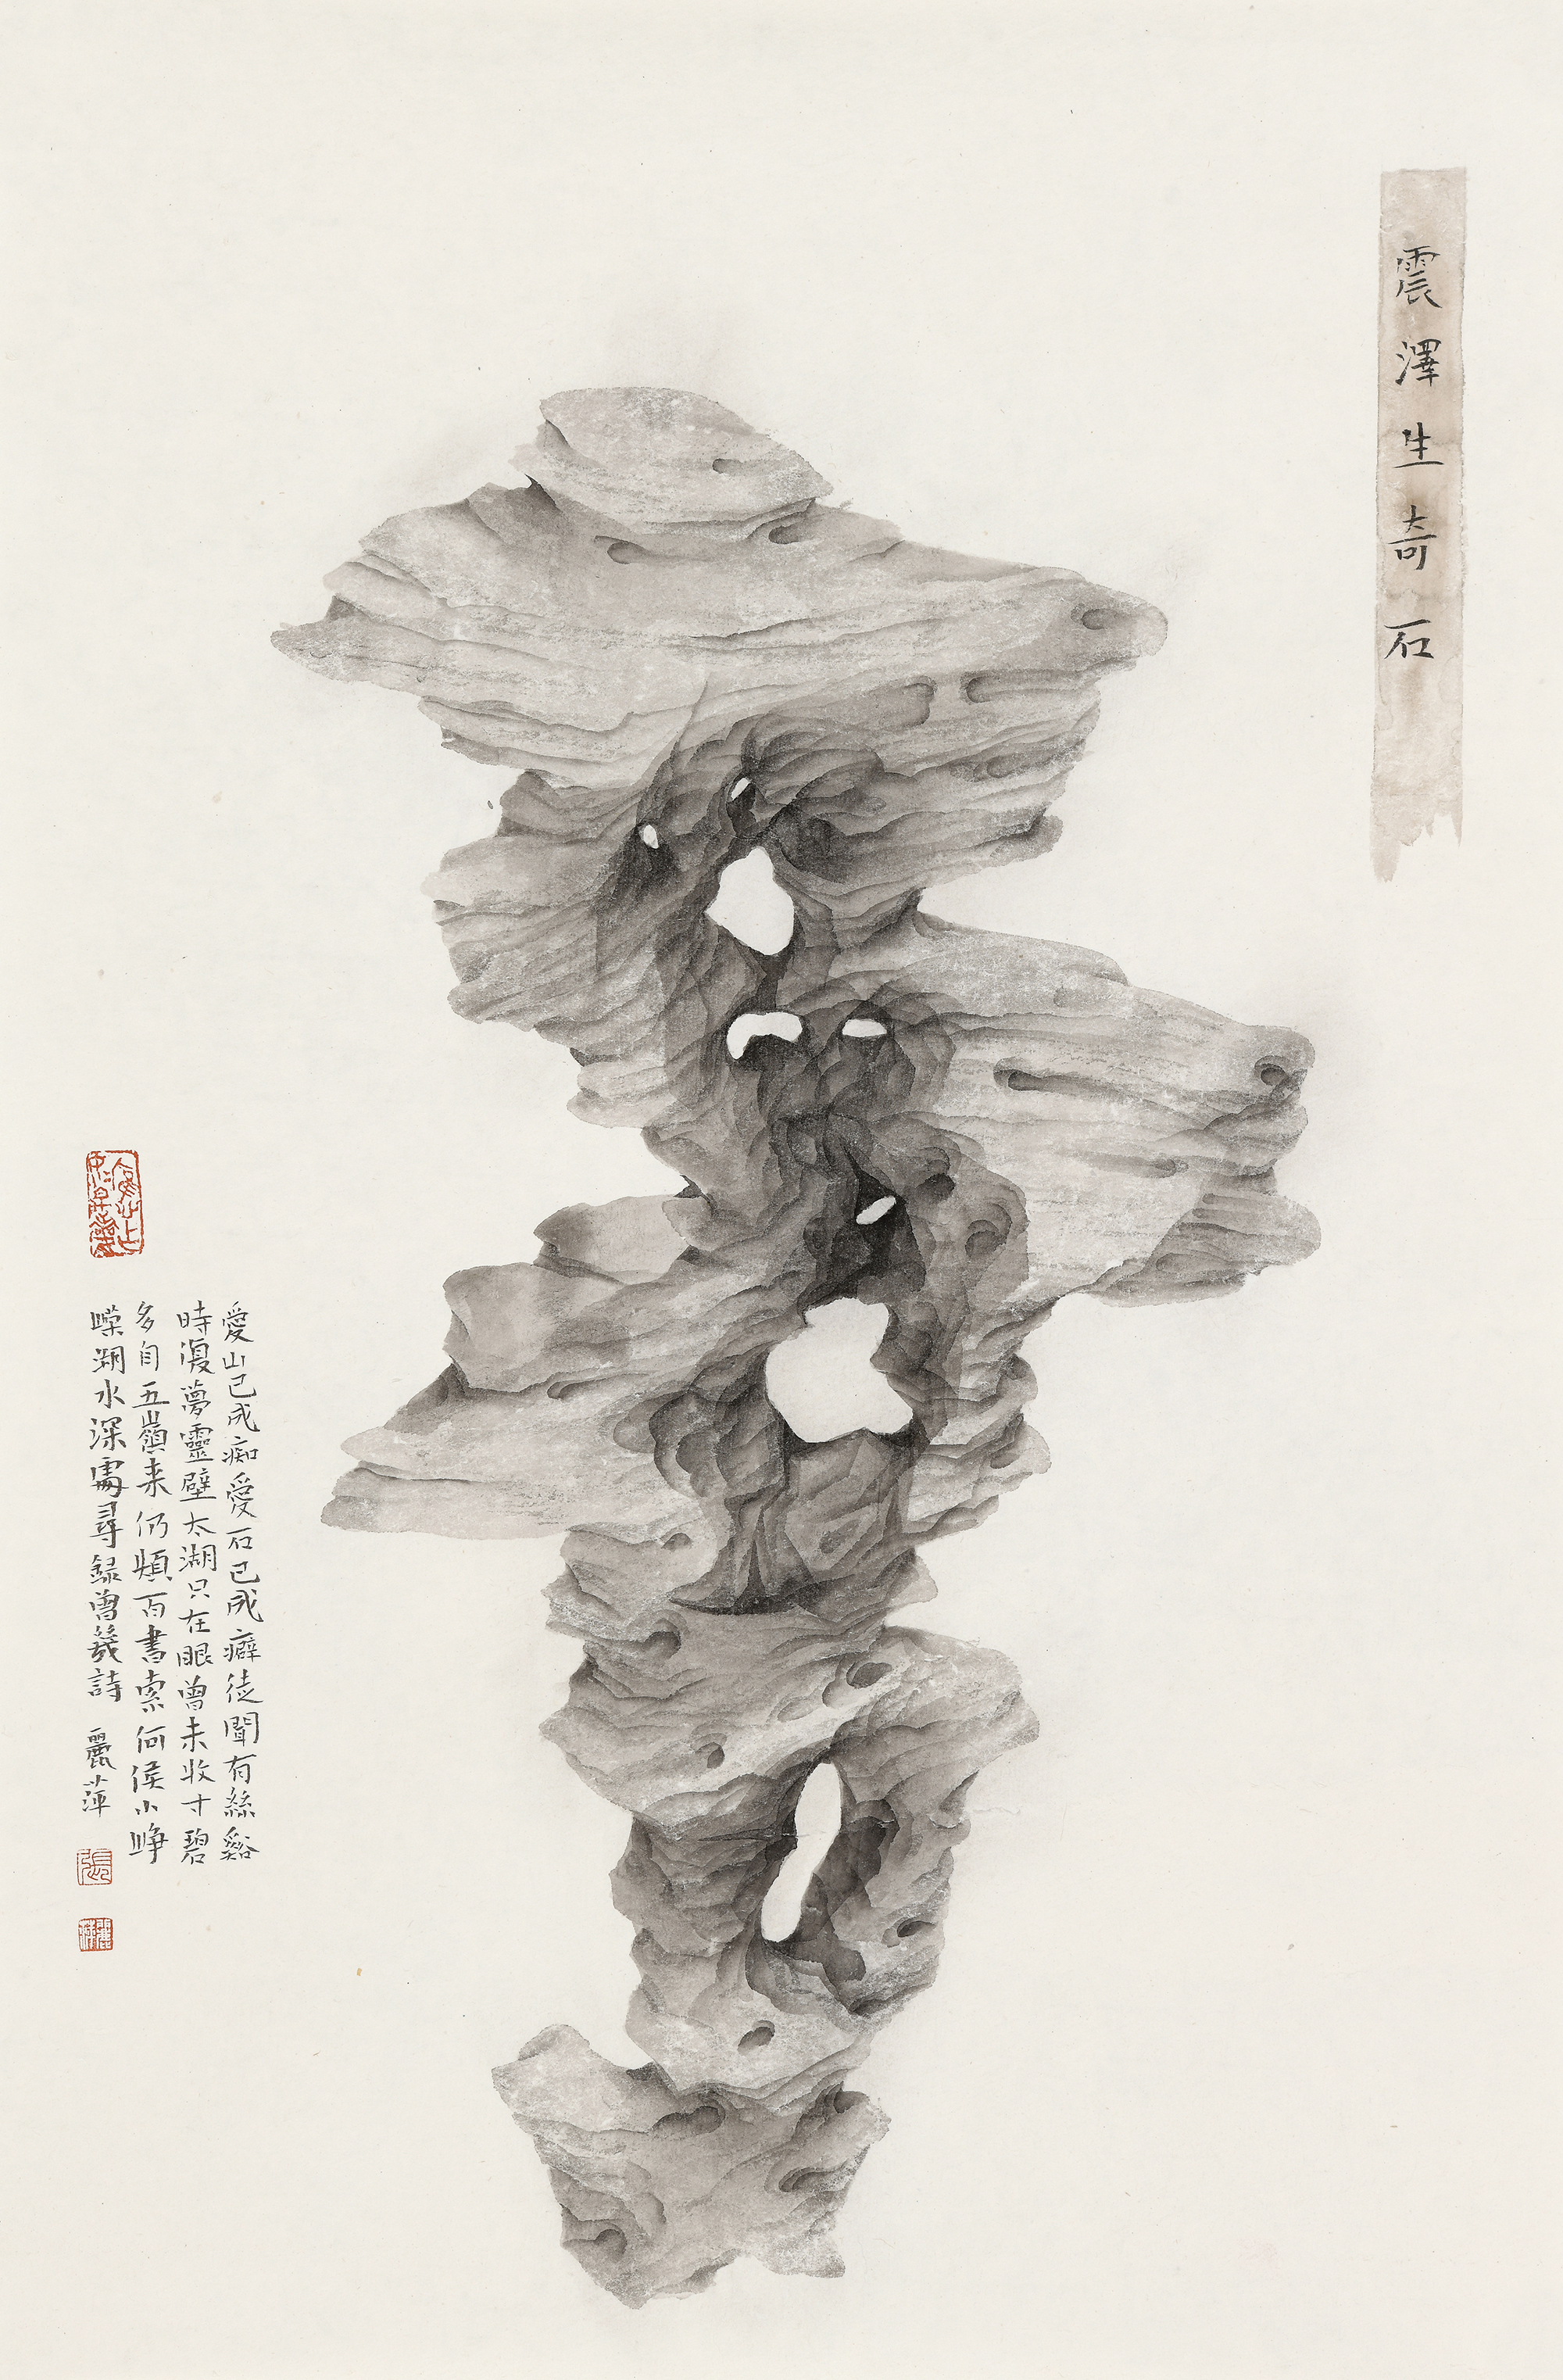 震澤生奇石
愛山已成痴愛石已成癖徒聞有絲谿
時復夢靈壁太湖只在眼曾未收寸碧
多自五嶺来仍煩百書索何侯小崢
嶸湖水深處尋録曾幾詩 麗萍
張
麗萍